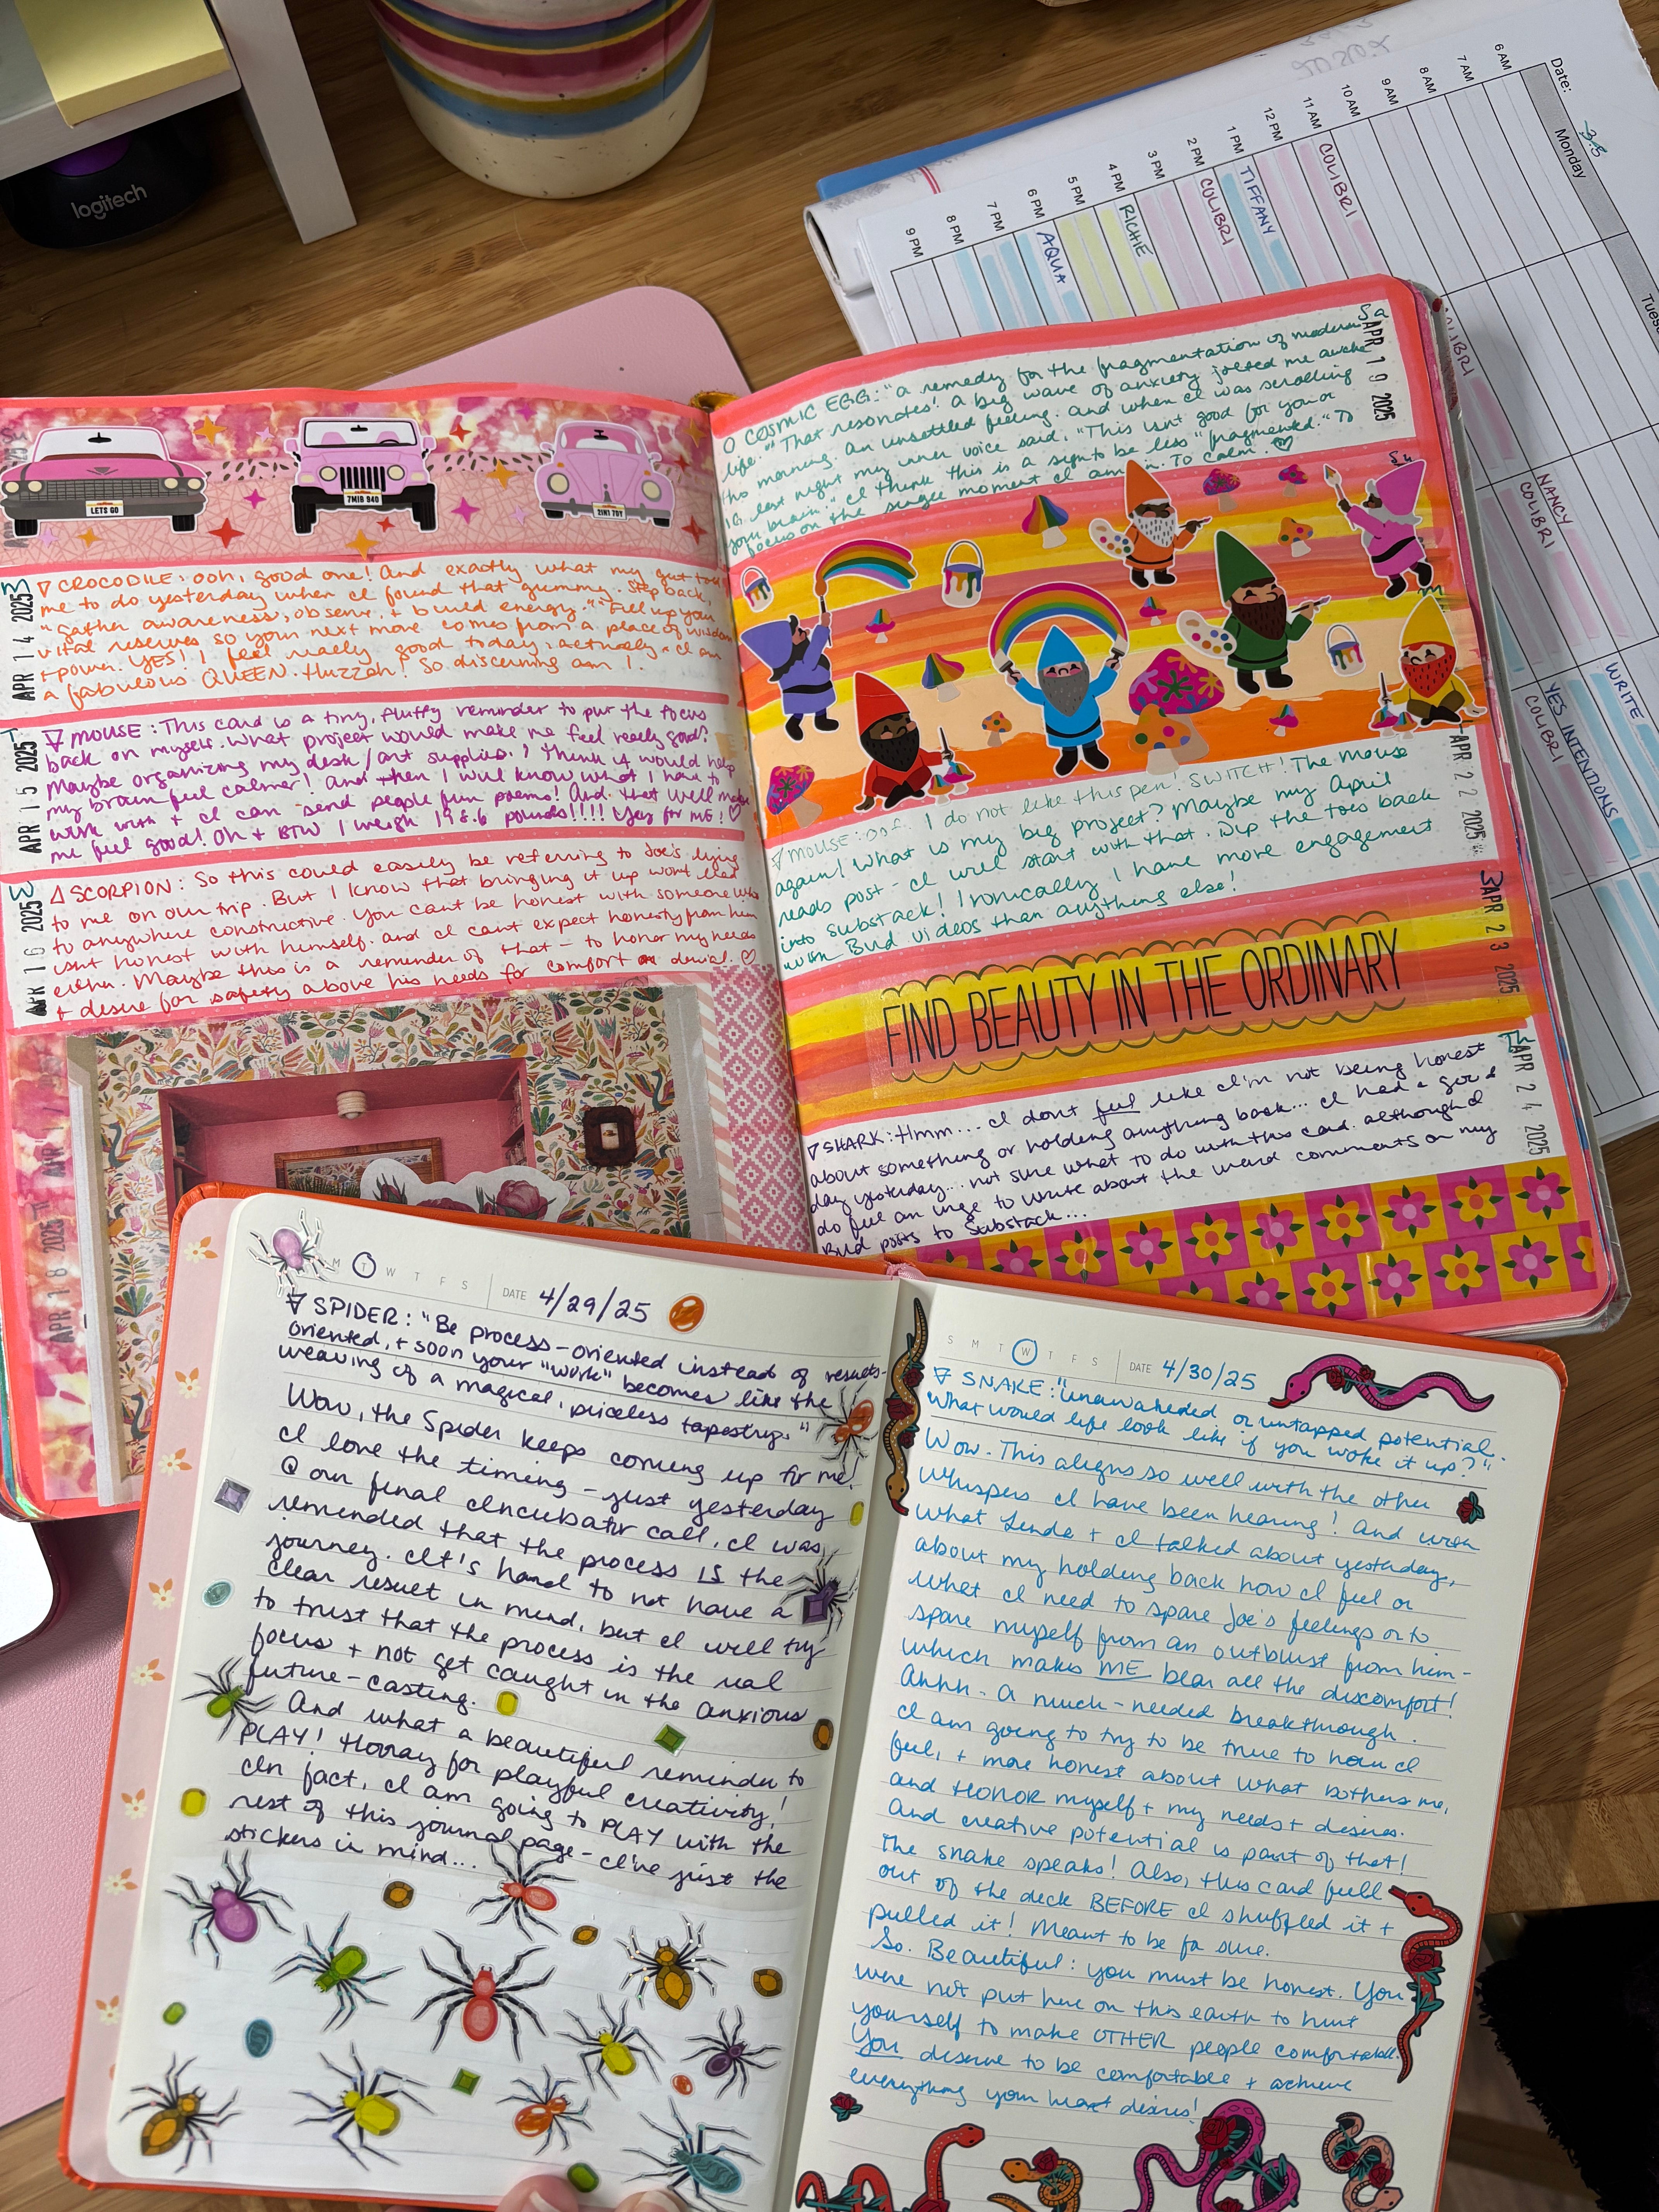 logitech
Date:
Monday
3.5
Tues
6 AM
7 AM
8 AM
9 AM
10 AM
11 AM
12 PM
1 PM
2 PM
3 PM
4 PM
5 PM
6 PM
7 PM
8 PM
9 PM
COLIBRI
TIFFANY
COLIBRI
RICHIE
AQUA
COLIBRI
NANCY
COLIBRI
WRITE
YES INTENTIONS
COLIBRI
LETS GO
7MIB 940
2IN1 7DY
M
APR 14 2025
∇ CROCODILE: ooh, good one! And exactly what my gut told
me to do yesterday when I found that gummy. Step back,
"gather awareness, observe, + build energy." "Fill up your
vital reserves so your next move comes from a place of wisdom
+ power. YES! I feel really good today, actually. I am
a fabulous QUEEN. Huzzah! So discerning am I.
T
APR 15 2025
MOUSE: This card is a tiny, fluffy reminder to put the focus
back on myself. What project would make me feel really good?
Maybe organizing my desk/art supplies. I think it would help
my brain feel calmer! And then I will know what I have to
work with + I can send people fun poems! And that will make
me feel good! Oh + BTW I weigh 198.6 pounds!!!! Yay for ME! ♡
W
APR 16 2025
Δ SCORPION: So this could easily be referring to Joe's lying
to me on our trip. But I know that bringing it up won't lead
to anywhere constructive. You can't be honest with someone who
isn't honest with himself. And I can't expect honesty from him
either. Maybe this is a reminder of that – to honor my needs
+ desire for safety above his needs for comfort or denial. ♡
APR 18 2025
Sa
APR 19 2025
O COSMIC EGG: "a remedy for the fragmentation of modern
life." That resonates! A big wave of anxiety jolted me awake
this morning. An unsettled feeling. And when I was scrolling
IG last night my inner voice said, "This isn't good for you or
your brain." I think this is a sign to be less "fragmented." To
focus on the single moment I am in. To calm. ♡
Su
M
APR 22 2025
MOUSE: oof. I do not like this pen! SWITCH! The Mouse
again! What is my big project? Maybe my April
reads post – I will start with that. Dip the toes back
into substack! Ironically, I have more engagement
with Bud videos than anything else!
W
APR 23 2025
FIND BEAUTY IN THE ORDINARY
Th
APR 24 2025
∇ SHARK: Hmm... I don't feel like I'm not being honest
about something or holding anything back... I had a good
day yesterday... not sure what to do with this card. Although I
do feel an urge to write about the weird comments on my
Bud posts to Substack...
M T W T F S
DATE 4/29/25
SPIDER: "Be process-oriented instead of results-
oriented, + soon your "work" becomes like the
weaving of a magical, priceless tapestry."
Wow, the Spider keeps coming up for me!
I love the timing – just yesterday
@ our final Incubator call, I was
reminded that the process IS the
journey. It's hard to not have a
clear result in mind, but I will try
to trust that the process is the real
focus + not get caught in the anxious
future-casting.
And what a beautiful reminder to
PLAY! Hooray for playful creativity!
In fact, I am going to PLAY with the
rest of this journal page – I've just the
stickers in mind...
S M T W T F S
DATE 4/30/25
SNAKE: "Unawakened or untapped potential.
What would life look like if you woke it up?"
Wow. This aligns so well with the other
whispers I have been hearing! And with
what Linda + I talked about yesterday,
about my holding back how I feel or
what I need to spare Joe's feelings or to
spare myself from an outburst from him–
which makes ME bear all the discomfort!
Ahhh – A much-needed breakthrough.
I am going to try to be true to how I
feel, + more honest about what bothers me,
and HONOR myself + my needs + desires.
And creative potential is part of that!
The snake speaks! Also, this card fell
out of the deck BEFORE I shuffled it +
pulled it! Meant to be fa sure.
So. Beautiful: you must be honest. You
were not put here on this earth to hurt
yourself to make OTHER people comfortable.
You deserve to be comfortable + achieve
everything your heart desires!